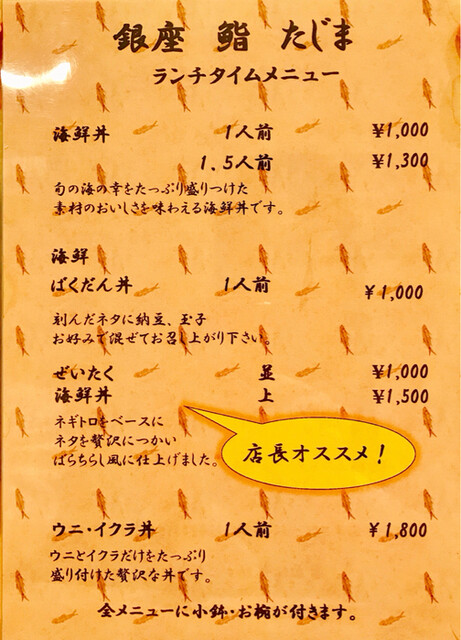 銀座 鮨 たじま
ランチタイムメニュー
海鮮丼 1人前 ¥1,000
1.5人前 ¥1,300
旬の海の幸をたっぷり盛りつけた
素材のおいしさを味わえる海鮮丼です。
海鮮
ばくだん丼 1人前 ¥1,000
刻んだネタに納豆、玉子
お好みで混ぜてお召し上がり下さい。
ぜいたく 並 ¥1,000
海鮮丼 上 ¥1,500
ネギトロをベースに
ネタを贅沢につかい
ばらちらし風に仕上げました。
店長オススメ!
ウニ・イクラ丼 1人前 ¥1,800
ウニとイクラだけをたっぷり
盛り付けた贅沢な丼です。
全メニューに小鉢・お椀が付きます。